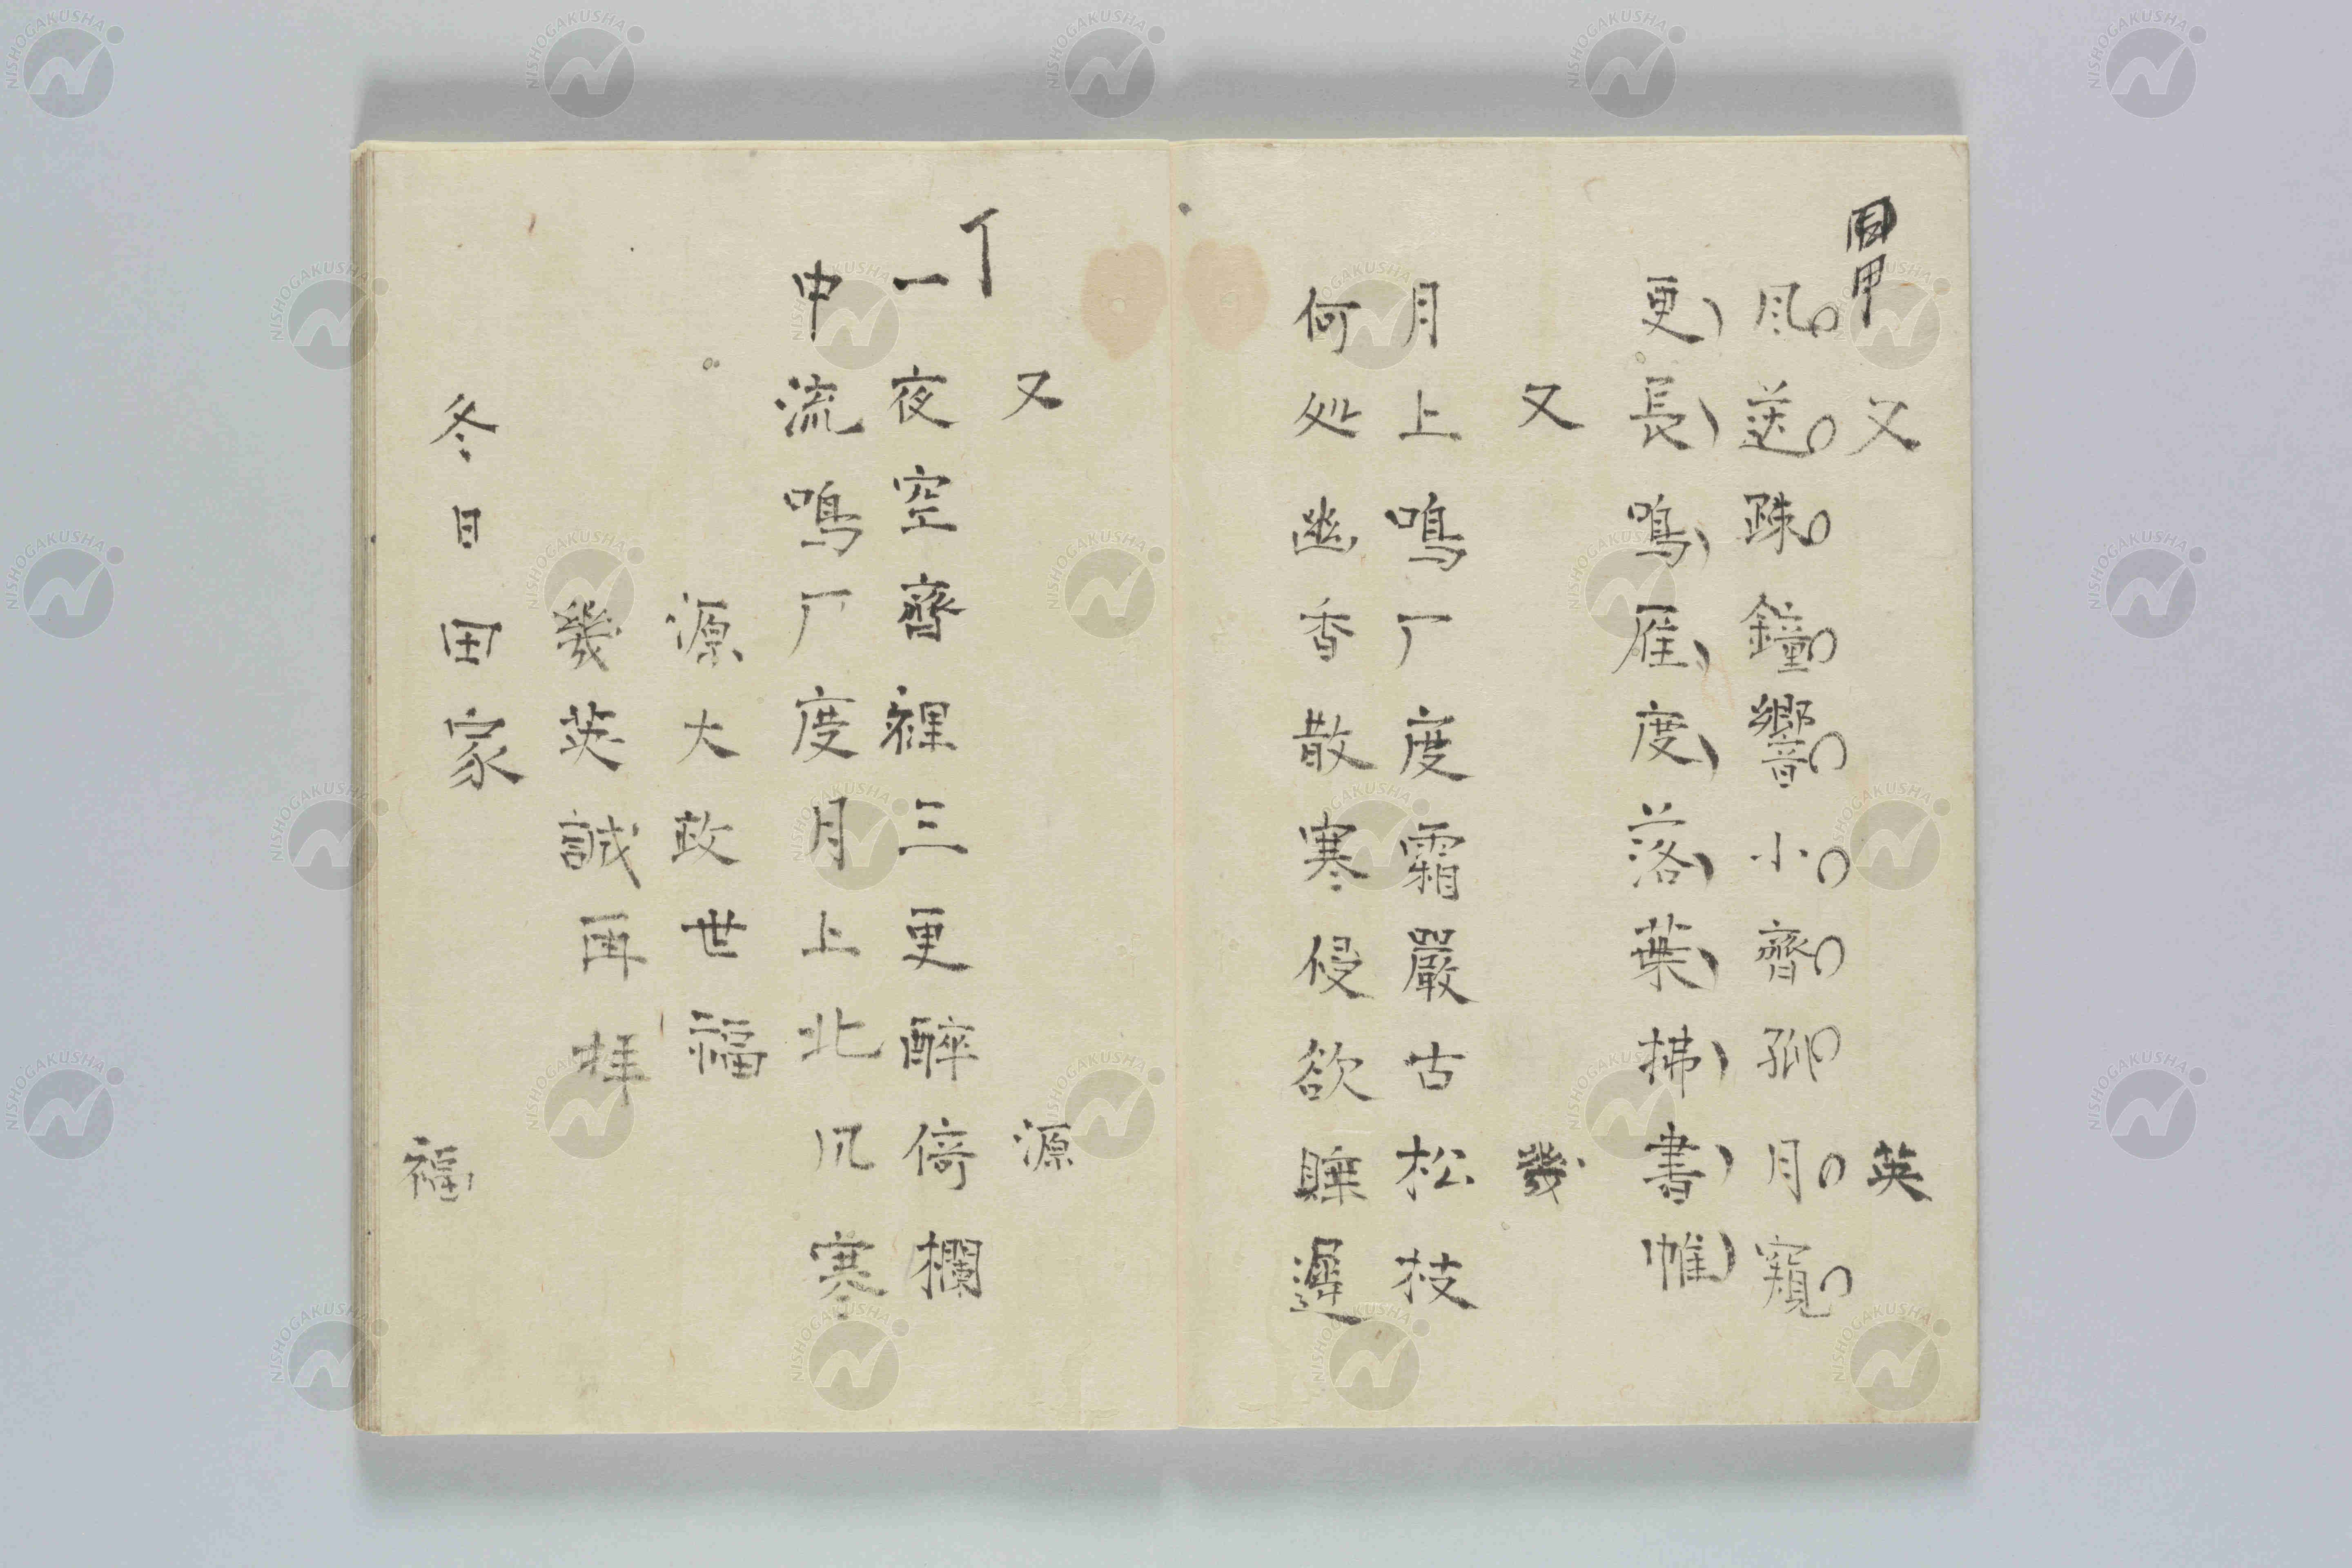 甲
又 英
風送疎鐘響小齊孤月窺
更長鳴雁度落葉拂書帷
又 幾
月上鳴厂度霜嚴古松枝
何処幽香散寒侵欲睡遲
丁
又 源
一夜空齊裡三更醉倚欄
中流鳴厂度月上北风寒
源大政世福
幾英誠再拜
冬日田家
福
NISHOGAKUSHA